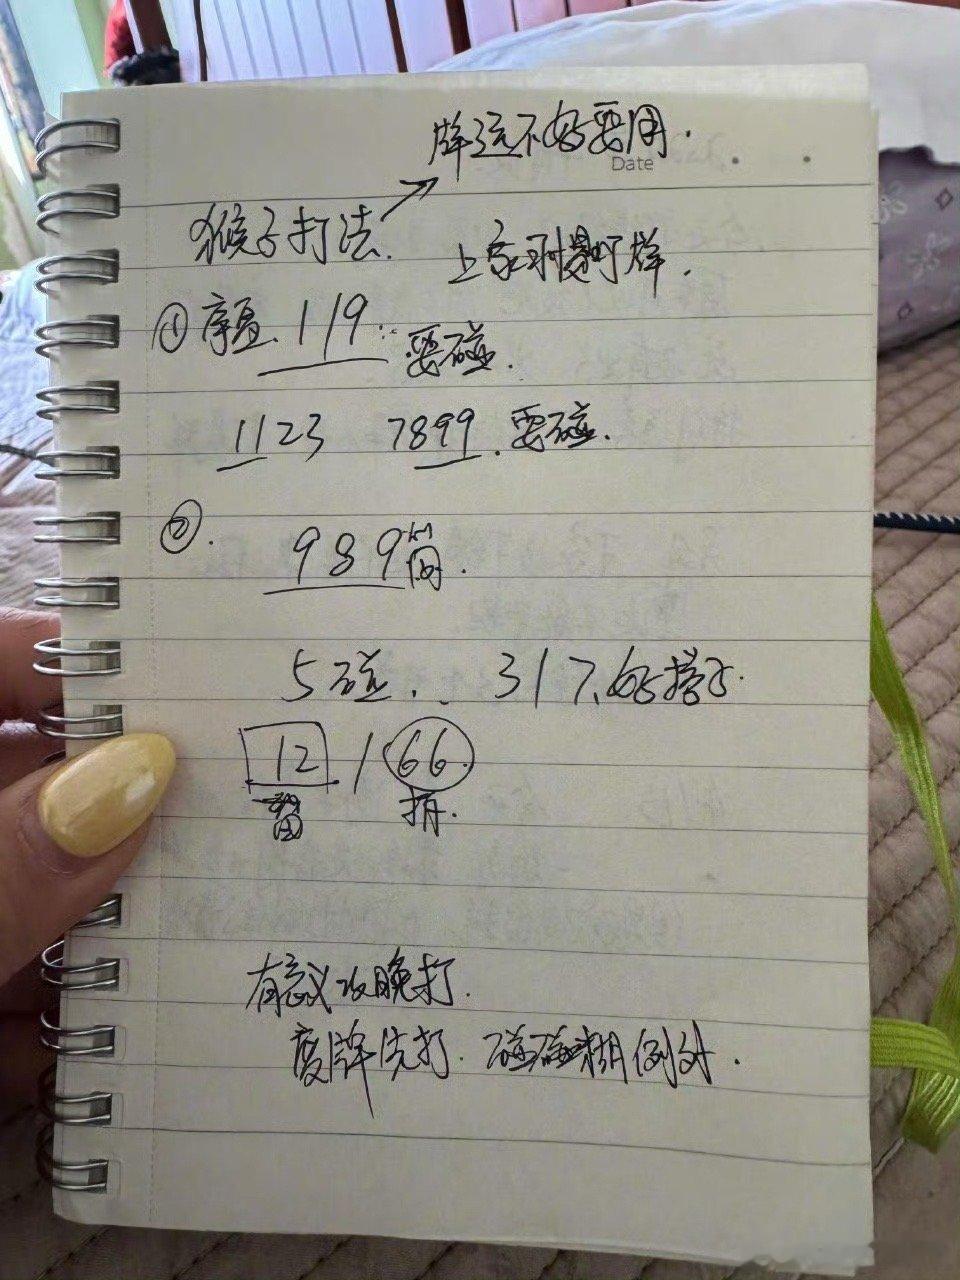 牌运不好要用.
Date
猴子打法. 上家 牌.
① 119. 要碰.
1123 7899. 要碰.
②. 989筒.
5碰. 317. 好搭子.
12 1 66.
留 捐.
有意义 晚打.
废牌先打. 碰碰糊例外.